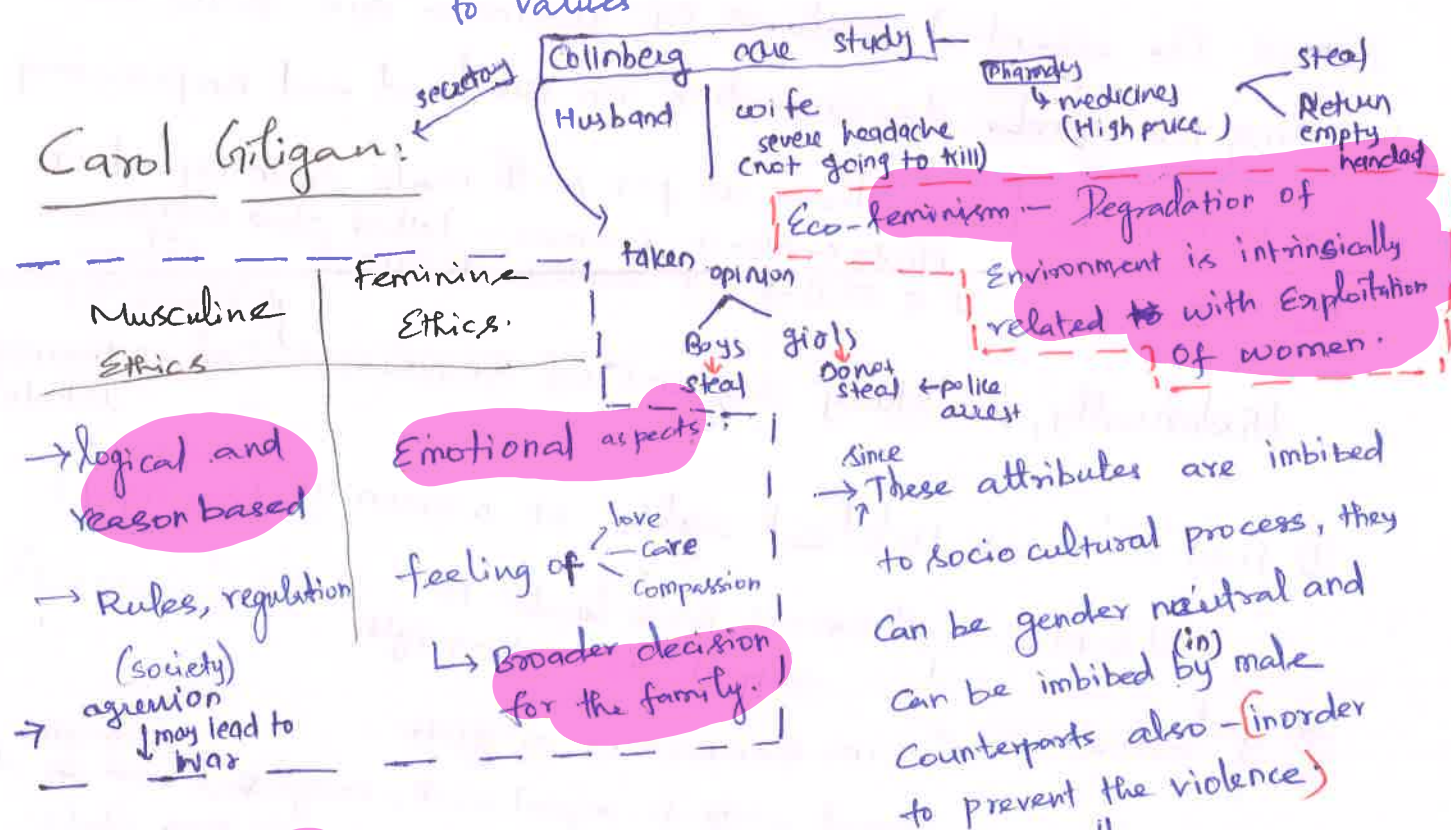 to values
Colinberg case study
secretary
Carol Giligan:
Husband
wife
severe headache
(not going to kill)
Pharmacy
medicines
(High price)
steal
Return
empty
handed
Eco-feminism - Degradation of
Environment is intrinsically
related with Exploitation
of women.
taken opinion
Boys
steal
girls
Do not
steal ← police
arrest
Musculine
Ethics
→ logical and
reason based
→ Rules, regulation
(society)
→ agression
↓ may lead to
war
Feminine
Ethics.
Emotional aspects.
feeling of
love
care
compassion
↳ Broader decision
for the family.
since
→ These attributes are imbibed
to socio cultural process, they
can be gender neutral and
(in)
can be imbibed by male
Counterparts also - (inorder
to prevent the violence)